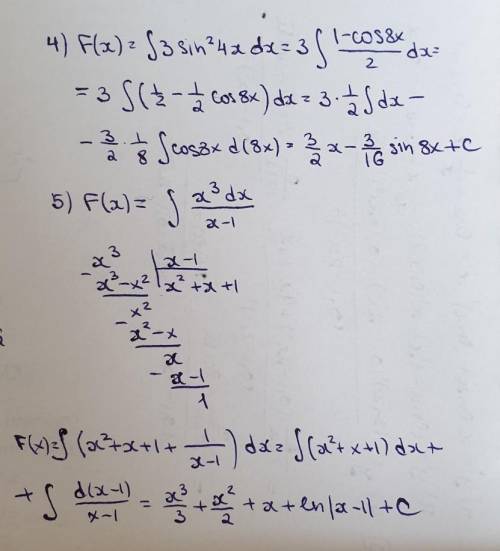 4) F(x) = ∫3 sin²4x dx = 3 ∫ (1-cos8x)/2 dx =
= 3 ∫(1/2 - 1/2 cos8x) dx = 3·1/2 ∫dx -
- 3/2 · 1/8 ∫cos8x d(8x) = 3/2 x - 3/16 sin 8x + C
5) F(x) = ∫ x³dx/(x-1)
x³ | x-1
- x³-x² | x²+x+1
x²
- x²-x
x
- x-1
1
F(x)=∫(x²+x+1+ 1/(x-1)) dx = ∫(x²+x+1) dx +
+ ∫ d(x-1)/(x-1) = x³/3 + x²/2 + x + ln|x-1| + C